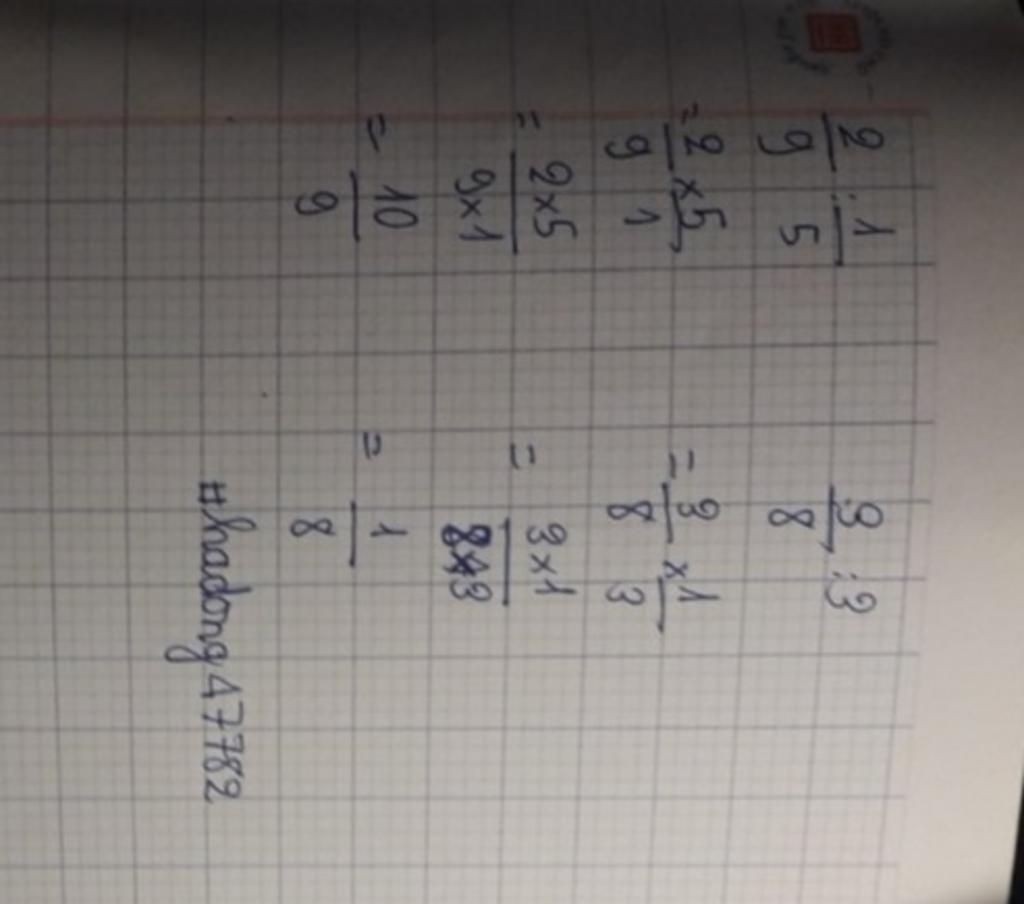 2/9 : 1/5
= 2/9 x 5/1
= 2x5/9x1
= 10/9
3/8 : 3
= 3/8 x 1/3
= 3x1/8x3
= 1/8
#hadong47782